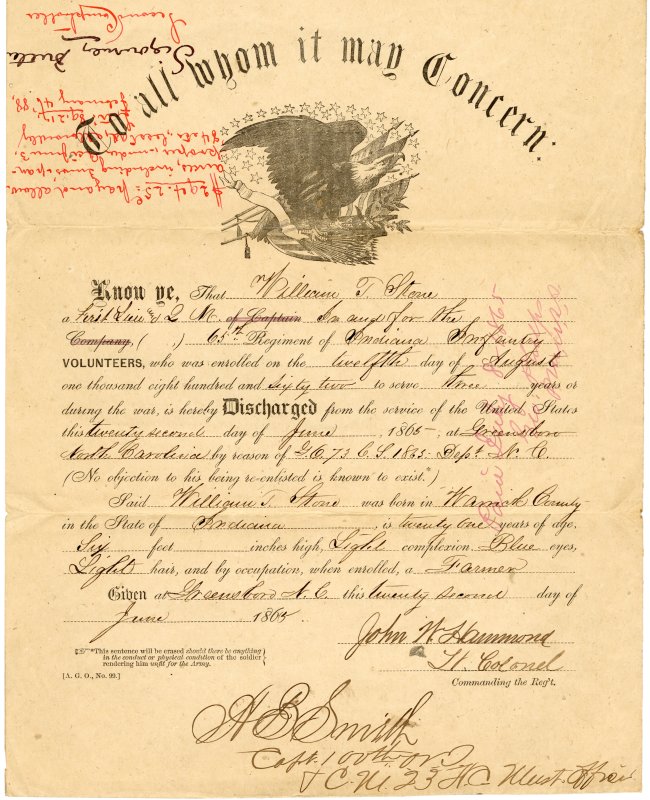 To all whom it may Concern:
Know ye, That William T. Stone
a First Lieut & 2 M. of Captain In and for the
Company, ( , ) 65th Regiment of Indiana Infantry
VOLUNTEERS, who was enrolled on the twelfth day of August
one thousand eight hundred and sixty two to serve three years or
during the war, is hereby Discharged from the service of the United States
this twenty second day of June, 1865, at Greensboro
North Carolina by reason of G.O. 73 C.S. 1865 Dept. N. C.
(No objection to his being re-enlisted is known to exist.*)
Said William T. Stone was born in Warrick County
in the State of Indiana, is twenty one years of age,
Six feet inches high, Light complexion, Blue eyes,
Light hair, and by occupation, when enrolled, a Farmer
Given at Greensboro N. C. this twenty second day of
June 1865
John W. Hammond
Lt. Colonel
Commanding the Reg't.
*This sentence will be erased should there be anything
in the conduct or physical condition of the soldier
rendering him unfit for the Army.
[A. G. O., No. 99.]
A E Smith
Capt. 100th O.V.
& C.M. 23 A.C. Must. Officer
Second Comptroller
$294.25
February